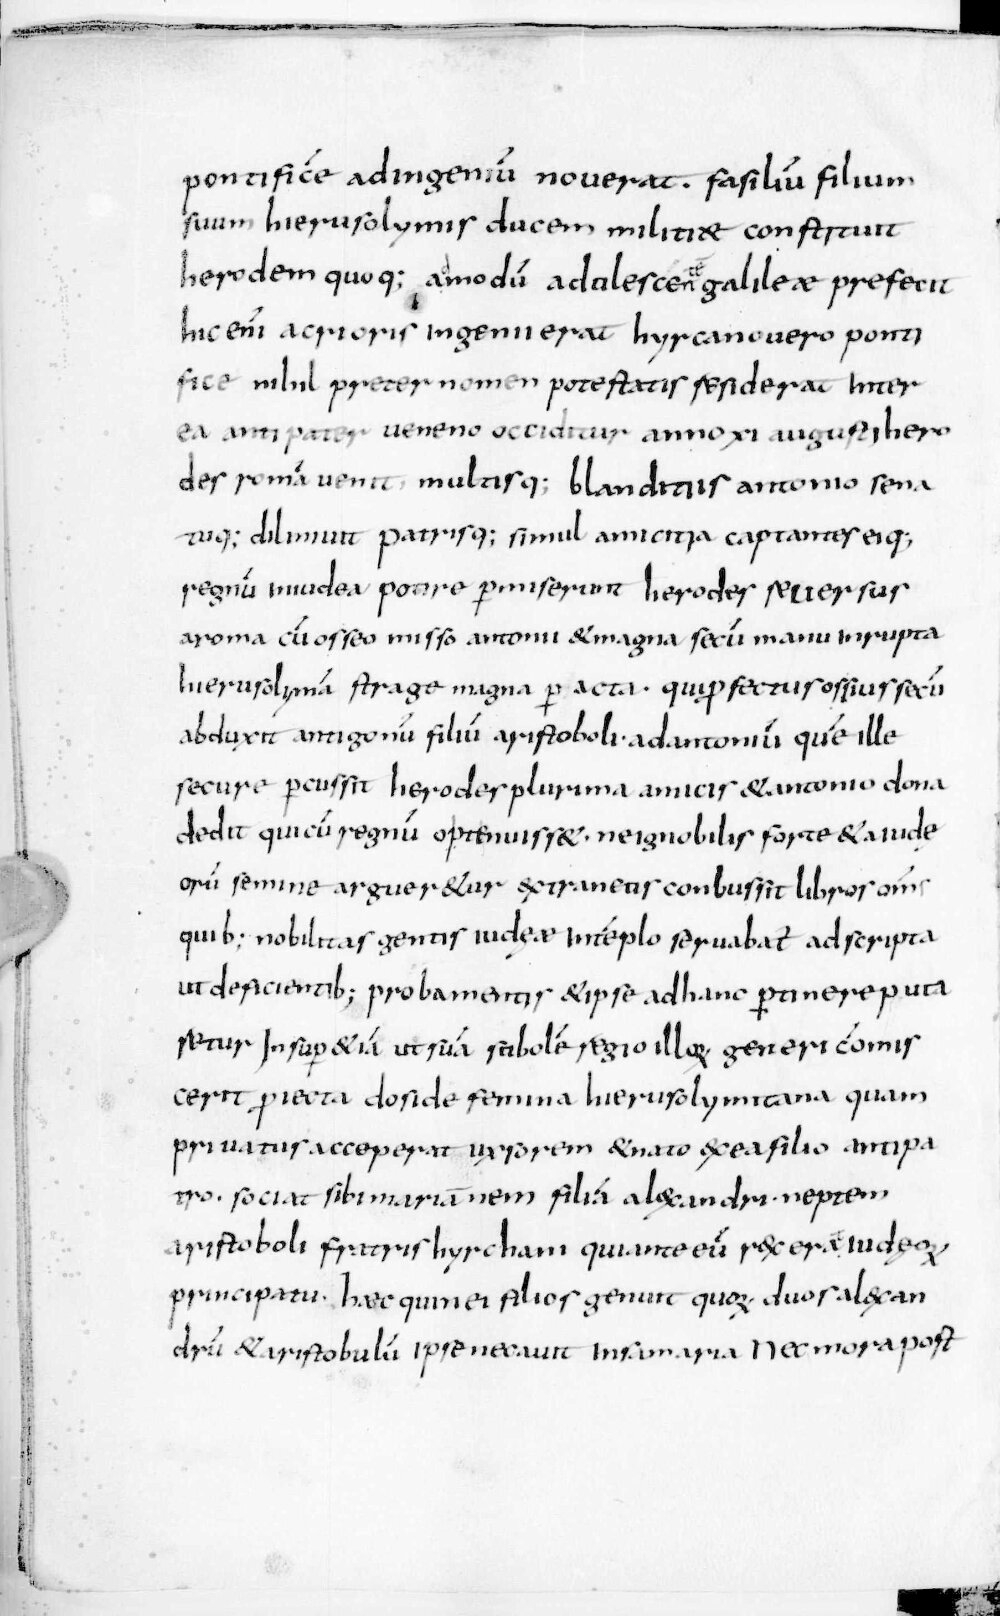 pontificē adingeniū noverat. fasiliū filium
suum hierusolymis ducem militiae constituit
herodem quoq; amodū adulescēn galileae prefecit
hic enī acrioris ingenii erat hyrcano vero ponti
fice nihil preter nomen potestatis residerat Inter
ea antipater veneno occiditur anno xi augusti hero
des romā venit, multisq; blanditiis antonio sena
tuq; dilinivit patrisq; simul amicitia captantes eiq;
regnū iniudea potire p̄miserunt herodes reversus
aroma cū osseo misso antonii &magna secū manu inrupta
hierusolymā strage magna p̄acta. quip̄fectus ossius secū
abduxit antigonū filiū aristoboli. adantoniū quē ille
secure p̄cussit herodes plurima amicis &antonio dona
dedit qui cū regnū optenuiss&. ne ignobilis forte &aiudę
orū semine arguer&ur &xtraneis conbussit libros om̄s
quib; nobilitas gentis iudęae intēplo servabat̄ adscripta
ut deficientib; probamentis &ipse adhanc p̄tinere puta
retur Insup̄ &iā ut suā stibolē regio illoꝝ generi cōmis
cerit p̄iecta doside femina hierusolymitana quam
privatus acceperat uxsorem &nato &xea filio antipa
tro. sociat sibi mariānem filiā al&xandri. neptem
aristoboli fratris hyrchani quiante eū r&x erae iudęoꝝ
principatu. haec quinei filios genuit quoꝝ duos al&xan
drū &aristobulū ipse necavit insamaria Nec mora post